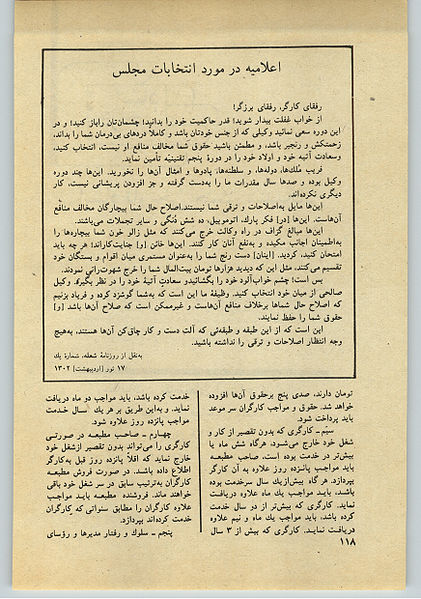 اعلامیه در مورد انتخابات مجلس
رفقای کارگر، رفقای برزگر!
از خواب غفلت بیدار شوید! قدر حاکمیت خود را بدانید! چشمان‌تان را باز کنید! و در
این دوره سعی نمائید وکیلی که از جنس خودتان باشد و کاملاً دردهای بی‌درمان شما را بداند،
زحمتکش و رنجبر باشد، و مطمئن باشید حقوق شما مخالف منافع او نیست، انتخاب کنید،
وسعادت آتیه خود و اولاد خود را در دورهٔ پنجم تقنینیه تأمین نماید.
فریب ملک‌ها، دوله‌ها، و سلطنه‌ها، و امثال آن‌ها را نخورید. این‌ها چند دوره
وکیل بوده و صدها سال مقدرات ما را به‌دست گرفته و جز افزودن پریشانی نیست، کار
دیگری نکرده‌اند.
این‌ها مایل به‌اصلاحات و ترقی شما نیستند. اصلاح حال شما بیچارگان مخالف منافع
آن‌هاست. این‌ها [در] فکر پارک، اتوموبیل، ده شش دنگی و سایر تجملات می‌باشند.
این‌ها مبالغ گزاف در راه وکالت خرج می‌کنند که مثل زالو خون شما بیچاره‌ها را
به‌اطمینان اجانب مکیده و به‌نفع آنان کار کنند. این‌ها خائن [و] جنایت‌کاراند! هر چه باید
امتحان کنید، کردید. [اینان] دست رنج شما را به‌عنوان مستمری میان اقوام و بستگان خود
تقسیم می‌کنند، مثل این که دیدید هزارها تومان بیت‌المال شما را خرج نمودند.
بس است! چشم خواب‌آلود خود را بگشائید و سعادت آتیهٔ خود را در نظر بگیرید. وکیل
صالحی از میان خود انتخاب کنید. وظیفهٔ ما این است که به‌شما گوشزد کرده و فریاد بزنیم
که اصلاح حال شماها برخلاف منافع آن‌هاست و غیرممکن است که صلاح آن‌ها باشد [و]
حقوق شما را حفظ نمایند.
این است که از این طبقه و طبقه‌ئی که آلت دست و کار چاق‌کن آن‌ها هستند، به‌هیچ
وجه انتظار اصلاحات و ترقی را نداشته باشید.
به‌نقل از روزنامهٔ شعله، شمارهٔ یک
۱۷ ثور [اردیبهشت] ۱۳۰۲
تومان دارند، صدی پنج برحقوق آن‌ها افزوده
خواهد شد. حقوق و مواجب کارگران سر موعد
باید پرداخت شود.
سیّم ـ کارگری که بدون تقصیر از کار و
شغل خود خارج می‌شود، هرگاه شش ماه یا
بیش‌تر در خدمت بوده است، صاحب مطبعه
باید مواجب پانزده روز علاوه به آن کارگر
بپردازد. هر گاه بیش‌از یک سال سرخدمت بوده
باشد، باید مواجب یک ماه علاوه دریافت
نماید. کارگری که بیش‌تر از دو سال خدمت
کرده باشد، باید مواجب یک ماه و نیم علاوه
دریافت نماید. کارگری که بیش از ۳ سال
خدمت کرده باشد، باید مواجب دو ماه دریافت
نماید. و به‌این طریق بر هر یک سال خدمت
مواجب پانزده روز علاوه شود.
چهارم ـ صاحب مطبعه در صورتی
کارگری را می‌تواند بدون تقصیر ازشغل خود
خارج نماید که اقلاً پانزده روز قبل به‌کارگر
اطلاع داده باشد. در صورت فروش مطبعه
کارگران به‌ترتیب سابق در سر شغل خود باقی
خواهند ماند. فروشنده مطبعه باید مواجب
علاوه کارگران را مطابق سنواتی که کارگران
خدمت کرده‌اند بپردازد.
پنجم ـ سلوک و رفتار مدیرها و رؤسای
۱۱۸